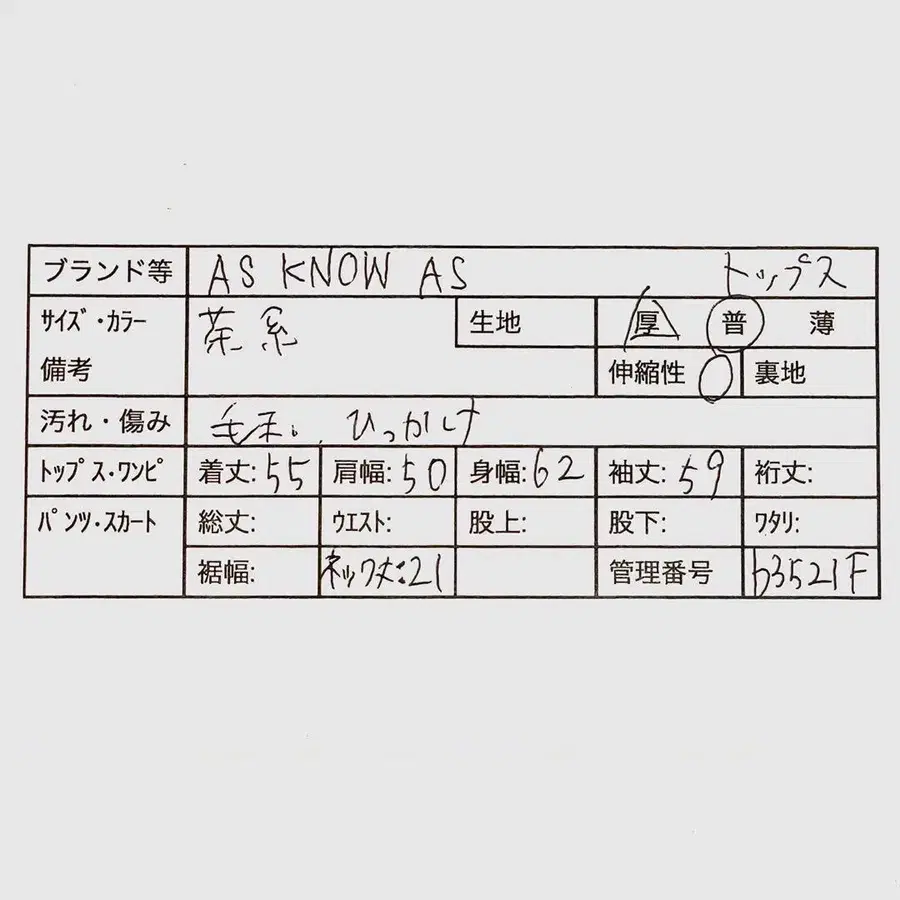 ブランド等 AS KNOW AS トップス
サイズ・カラー 茶系 生地 厚 普 薄
備考 伸縮性 〇 裏地
汚れ・傷み 毛玉、ひっかけ
トップス・ワンピ 着丈:55 肩幅:50 身幅:62 袖丈:59 裄丈:
パンツ・スカート 総丈: ウエスト: 股上: 股下: ワタリ:
裾幅: ネック丈:21 管理番号 b3521F